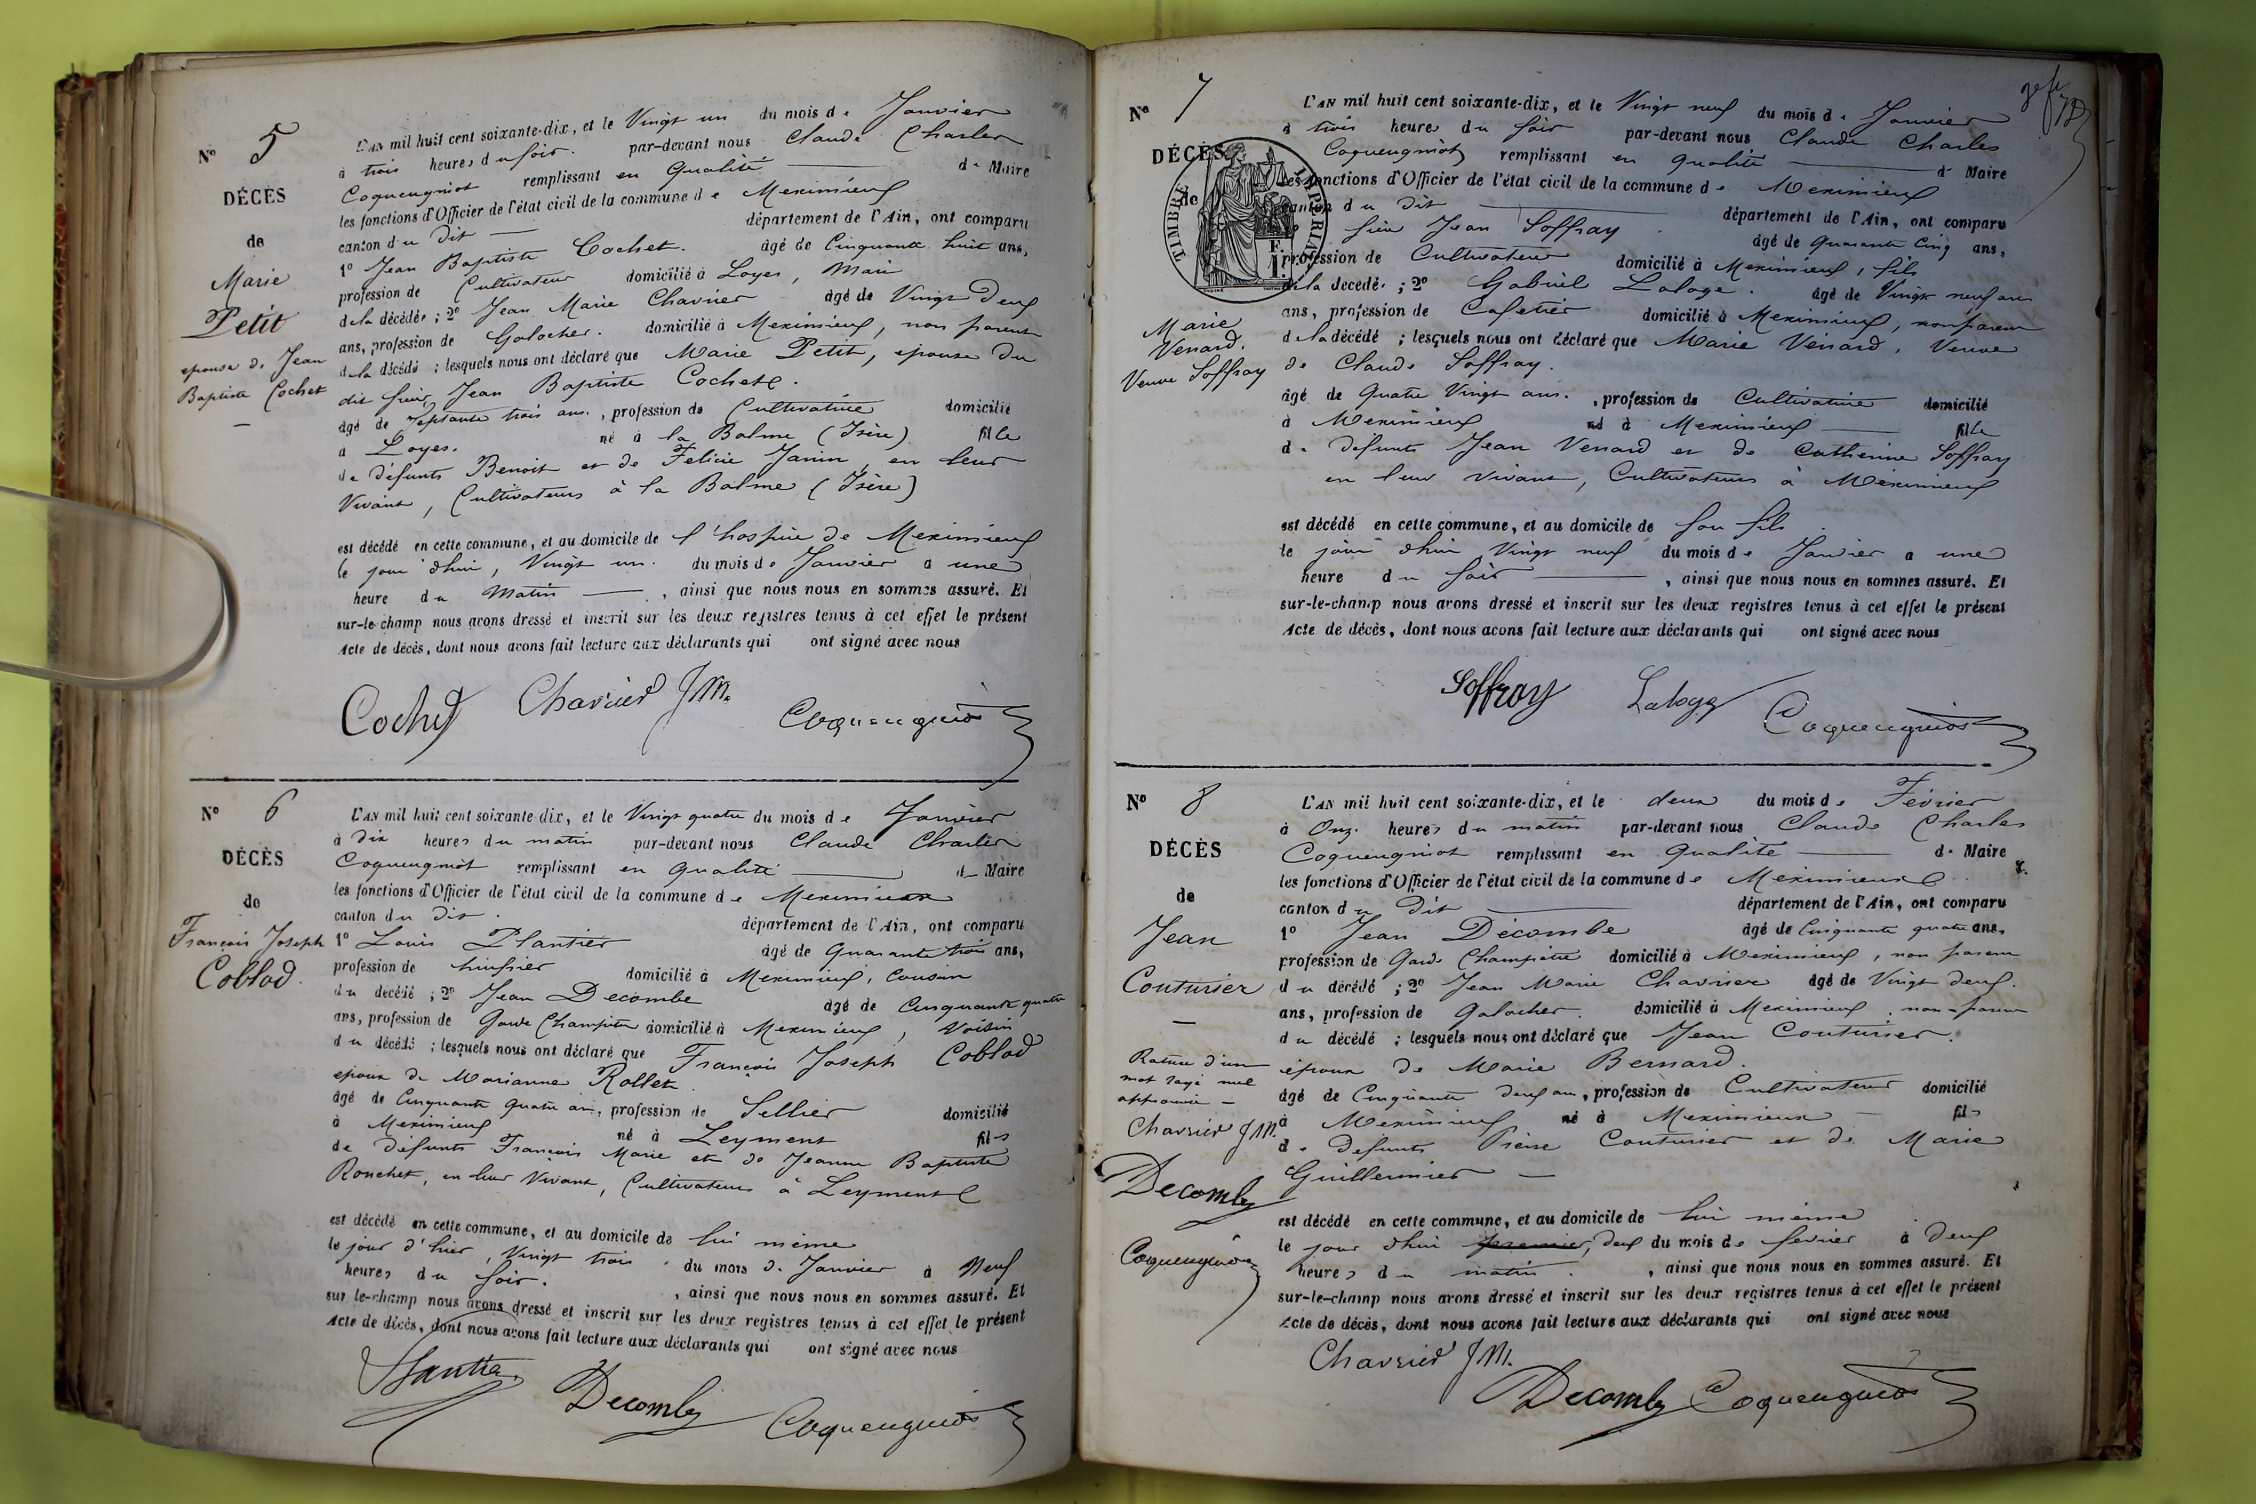 N° 5
DÉCÈS
de
Marie
Petit
epouse de Jean
Baptiste Cochet
L'AN mil huit cent soixante-dix, et le Vingt un du mois de Janvier
à trois heures du soir. par-devant nous Claude Charles
Coqueugniot remplissant en qualité de Maire
les fonctions d'Officier de l'état civil de la commune de Meximieux
canton du dit département de l'Ain, ont comparu
1° Jean Baptiste Cochet. âgé de Cinquante huit ans,
profession de Cultivateur domicilié à Loyes, Mari
de la décédée ; 2° Jean Marie Chavrier âgé de Vingt Deux
ans, profession de Galocher. domicilié à Meximieux, non parent
de la décédé ; lesquels nous ont déclaré que Marie Petit, epouse du
dit sieur Jean Baptiste Cochet.
âgé de Septante trois ans. , profession de Cultivatrice domicilié
à Loyes. né à la Balme (Isère) fille
de défunts Benoit et de Felicie Janin en leur
Vivant, Cultivateurs à la Balme (Isère)
est décédé en cette commune, et au domicile de l'hospice de Meximieux
le jour d'hui, Vingt un. du mois de Janvier à une
heure du Matin , ainsi que nous nous en sommes assuré. Et
sur-le-champ nous avons dressé et inscrit sur les deux registres tenus à cet effet le présent
Acte de décès, dont nous avons fait lecture aux déclarants qui ont signé avec nous
Cochet Chavrier J M. Coqueugniot
N° 6
DÉCÈS
de
François Joseph
Coblod.
L'AN mil huit cent soixante-dix, et le Vingt quatre du mois de Janvier
à Dix heures du matin par-devant nous Claude Charles
Coqueugniot remplissant en qualité de Maire
les fonctions d'Officier de l'état civil de la commune de Meximieux
canton du dit. département de l'Ain, ont comparu
1° Louis Plantier âgé de Quarante trois ans,
profession de huissier domicilié à Meximieux, Cousin
du décédé ; 2° Jean Decombe âgé de Cinquante quatre
ans, profession de Garde Champêtre domicilié à Meximieux, Voisin
du décédé ; lesquels nous ont déclaré que François Joseph Coblod
epoux de Marianne Rollet
âgé de Cinquante quatre ans, profession de Sellier domicilié
à Meximieux né à Leyment fils
de défunts François Marie et de Jeanne Baptiste
Ronchet, en leur Vivant, Cultivateurs à Leyment
est décédé en cette commune, et au domicile de lui même
le jour d'hier, Vingt trois. du mois de Janvier à Neuf
heures du soir. , ainsi que nous nous en sommes assuré. Et
sur le-champ nous avons dressé et inscrit sur les deux registres tenus à cet effet le présent
Acte de décès, dont nous avons fait lecture aux déclarants qui ont signé avec nous
Plantier Decombe Coqueugniot
N° 7
DÉCÈS
de
TIMBRE IMPÉRIAL
Marie
Venard.
Veuve Soffray
L'AN mil huit cent soixante-dix, et le Vingt neuf du mois de Janvier
à trois heures du soir par-devant nous Claude Charles
Coqueugniot remplissant en qualité de Maire
les fonctions d'Officier de l'état civil de la commune de Meximieux
canton du dit département de l'Ain, ont comparu
sieur Jean Soffray. âgé de Quarante Cinq ans,
profession de Cultivateur domicilié à Meximieux, fils
de la décédée ; 2° Gabriel Laloge. âgé de Vingt neuf ans
ans, profession de Cafetier domicilié à Meximieux, non parent
de la décédé ; lesquels nous ont déclaré que Marie Venard, Veuve
de Claude Soffray.
âgé de Quatre Vingt ans. , profession de Cultivatrice domicilié
à Meximieux né à Meximieux fille
de défunts Jean Venard et de Catherine Soffray
en leur vivant, Cultivateurs à Meximieux
est décédé en cette commune, et au domicile de son fils
le jour d'hui Vingt neuf du mois de Janvier à une
heure du soir , ainsi que nous nous en sommes assuré. Et
sur-le-champ nous avons dressé et inscrit sur les deux registres tenus à cet effet le présent
Acte de décès, dont nous avons fait lecture aux déclarants qui ont signé avec nous
Soffray Laloge Coqueugniot
N° 8
DÉCÈS
de
Jean
Couturier
Rature d'un
mot rayé nul
approuvée
Chavrier J M.
Decombe
Coqueugniot
L'AN mil huit cent soixante-dix, et le deux du mois de Février
à Onze heures du matin par-devant nous Claude Charles
Coqueugniot remplissant en qualité de Maire
les fonctions d'Officier de l'état civil de la commune de Meximieux
canton du dit département de l'Ain, ont comparu
1° Jean Decombe âgé de Cinquante quatre ans,
profession de Garde Champêtre domicilié à Meximieux, non parent
du décédé ; 2° Jean Marie Chavrier âgé de Vingt deux.
ans, profession de Galocher. domicilié à Meximieux, non-parent
du décédé ; lesquels nous ont déclaré que Jean Couturier.
époux de Marie Bernard.
âgé de Cinquante deux ans, profession de Cultivateur domicilié
à Meximieux né à Meximieux fils
de défunts Pierre Couturier et de Marie
Guillermier
est décédé en cette commune, et au domicile de lui même
le jour d'hui premier, deux du mois de février à Deux
heures du matin. , ainsi que nous nous en sommes assuré. Et
sur-le-champ nous avons dressé et inscrit sur les deux registres tenus à cet effet le présent
Acte de décès, dont nous avons fait lecture aux déclarants qui ont signé avec nous
Chavrier J M.
Decombe Coqueugniot